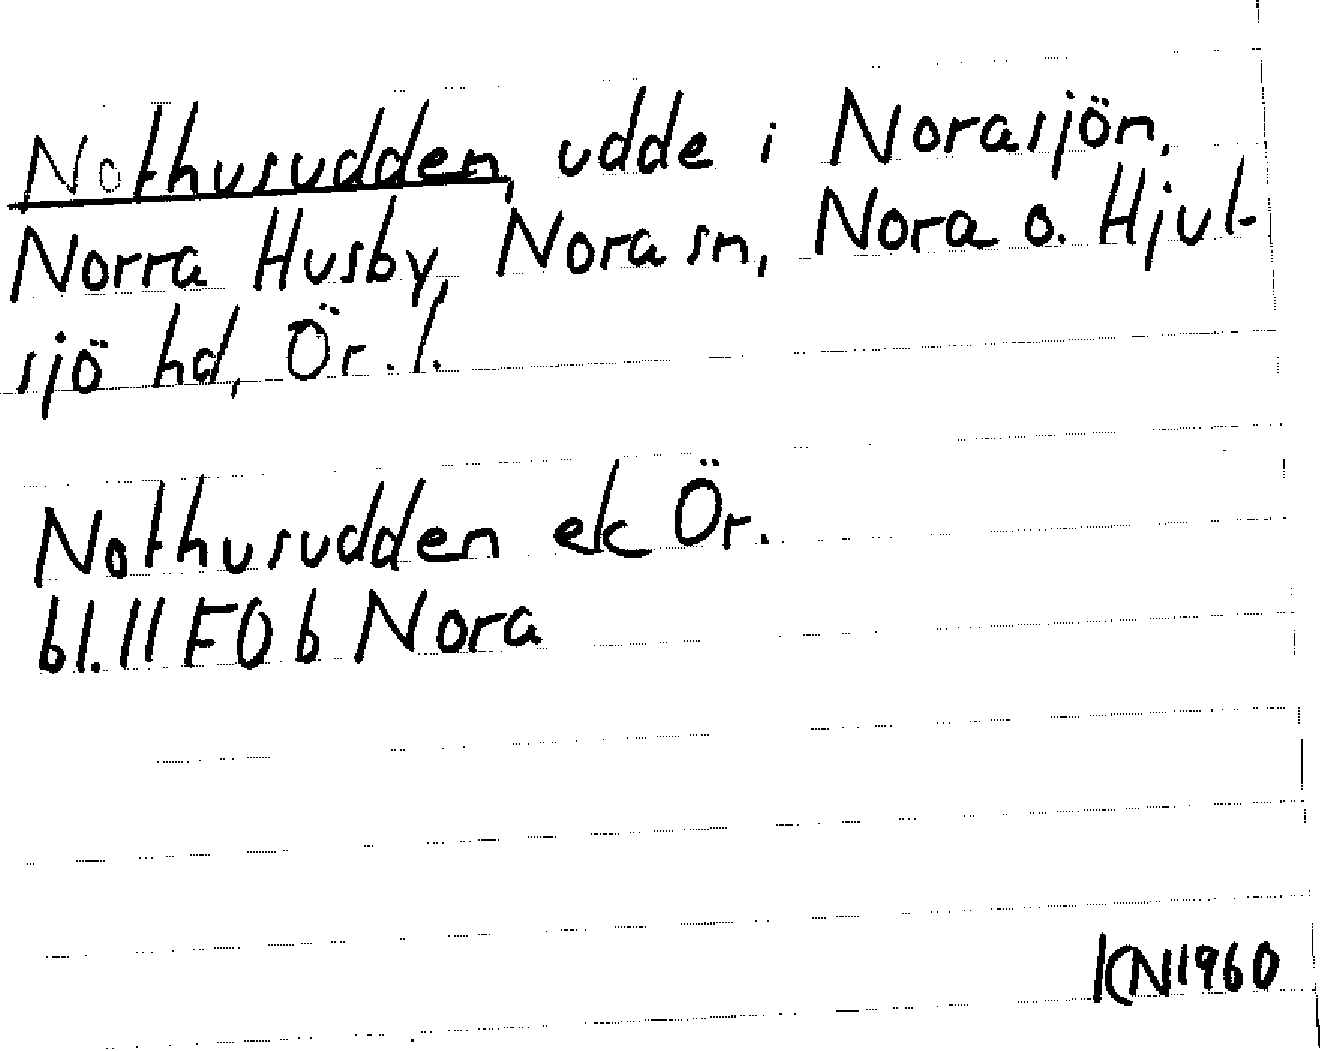 Nothusudden, udde i Norasjön,
Norra Husby, Nora sn, Nora o. Hjul-
sjö hd, Ör. l.
Nothusudden ek Ör.
bl. 11 F 0 b Nora
KN 1960